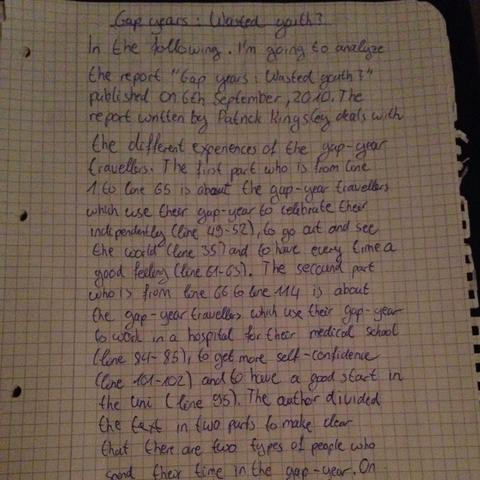 Gap years: Wasted youth?
In the following. I'm going to analyze
the report "Gap years: Wasted youth?"
published on 6th September, 2010. The
report written by Patrick Kingsley deals with
the different experiences of the gap-year
travellers. The first part who is from line
1 to line 65 is about the gap-year travellers
which use their gap-year to celebrate their
independently (line 49-52), to go out and see
the world (line 35) and to have every time a
good feeling (line 61-63). The second part
who is from line 66 to line 114 is about
the gap-year travellers which use their gap-year
to work in a hospital for their medical school
(line 84-85), to get more self-confidence
(line 101-102) and to have a good start in
the uni (line 95). The author divided
the text in two parts to make clear
that there are two types of people who
spend their time in the gap-year. On